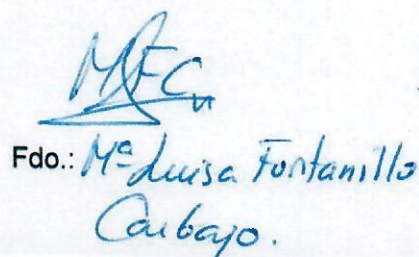 MFC
Fdo.: Mª Luisa Fontanillo
Carbajo.